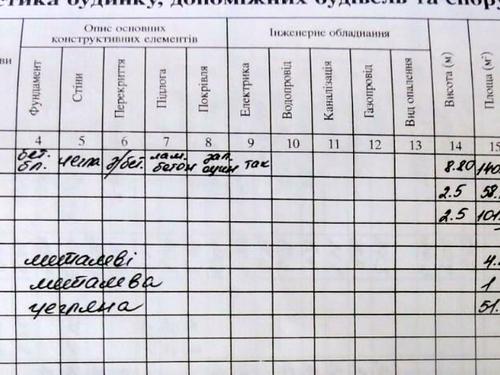 стика будинку, допоміжних будівель та спору
Опис основних
конструктивних елементів
Інженерне обладнання
ви
Фундамент
Стіни
Перекриття
Підлога
Покрівля
Електрика
Водопровід
Каналізація
Газопровід
Вид опалення
Висота (м)
Площа (м²)
4 5 6 7 8 9 10 11 12 13 14 15
бет. лам.
бл. цегла з/бет. бетон оцин так 8.20 140
2.5 58.
2.5 101
металеві 4.
металева 1
цегляна 51.